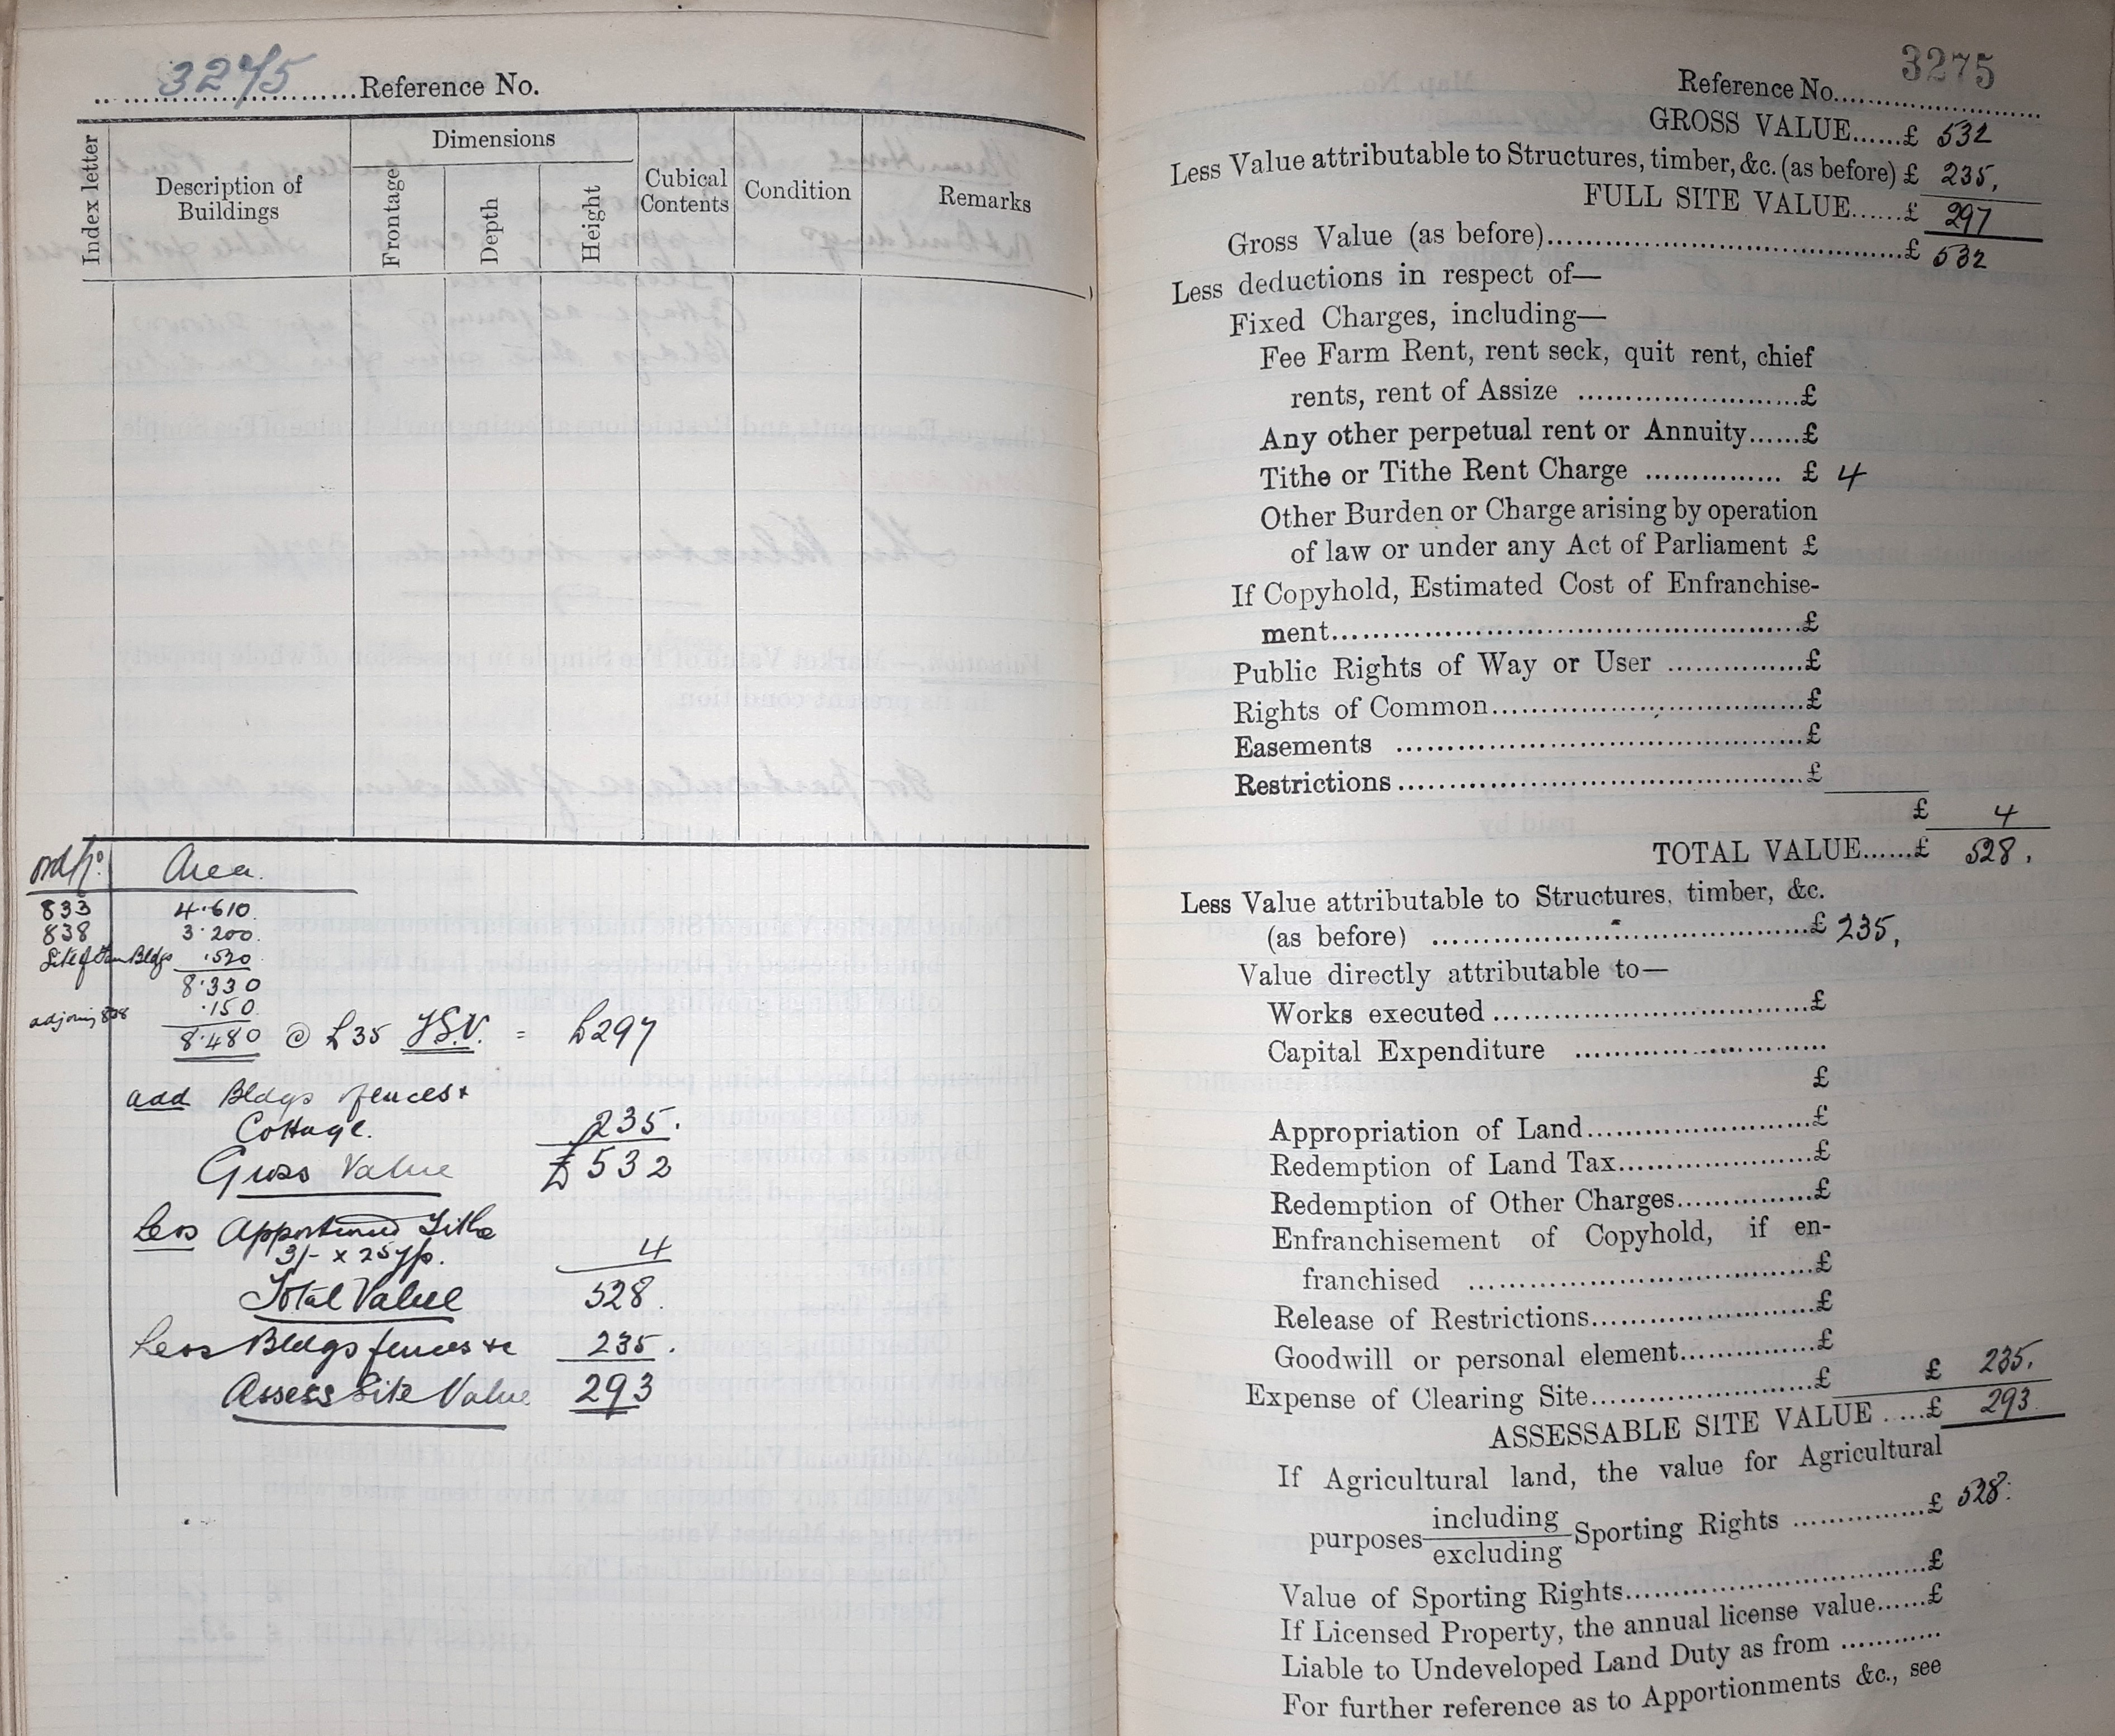 3275 Reference No.
Index letter
Description of Buildings
Dimensions
Frontage
Depth
Height
Cubical Contents
Condition
Remarks
Ord No. Area.
833 4.610.
838 3.200.
Site of Farm Bldgs .520
8.330
adjoining 838 .150
8.480 @ £35 F.S.V. = £297
add Bldgs fences &
Cottage. 235.
Gross Value £532
Less Apportioned Tithe
3/- x 25 yp. 4
Total Value 528.
Less Bldgs fences &c 235.
Assess Site Value 293
3275
Reference No.
GROSS VALUE......£ 532
Less Value attributable to Structures, timber, &c. (as before) £ 235.
FULL SITE VALUE......£ 297
Gross Value (as before)......£ 532
Less deductions in respect of—
Fixed Charges, including—
Fee Farm Rent, rent seck, quit rent, chief
rents, rent of Assize ......£
Any other perpetual rent or Annuity......£
Tithe or Tithe Rent Charge ...... £ 4
Other Burden or Charge arising by operation
of law or under any Act of Parliament £
If Copyhold, Estimated Cost of Enfranchise-
ment......£
Public Rights of Way or User ......£
Rights of Common......£
Easements ......£
Restrictions ......£
£ 4
TOTAL VALUE......£ 528.
Less Value attributable to Structures, timber, &c.
(as before) ......£ 235.
Value directly attributable to—
Works executed ......£
Capital Expenditure ......
£
Appropriation of Land......£
Redemption of Land Tax......£
Redemption of Other Charges......£
Enfranchisement of Copyhold, if en-
franchised ......£
Release of Restrictions......£
Goodwill or personal element......£
Expense of Clearing Site......£ £ 235.
ASSESSABLE SITE VALUE .....£ 293.
If Agricultural land, the value for Agricultural
purposes including excluding Sporting Rights ......£ 528.
Value of Sporting Rights......£
If Licensed Property, the annual license value......£
Liable to Undeveloped Land Duty as from ......
For further reference as to Apportionments &c., see